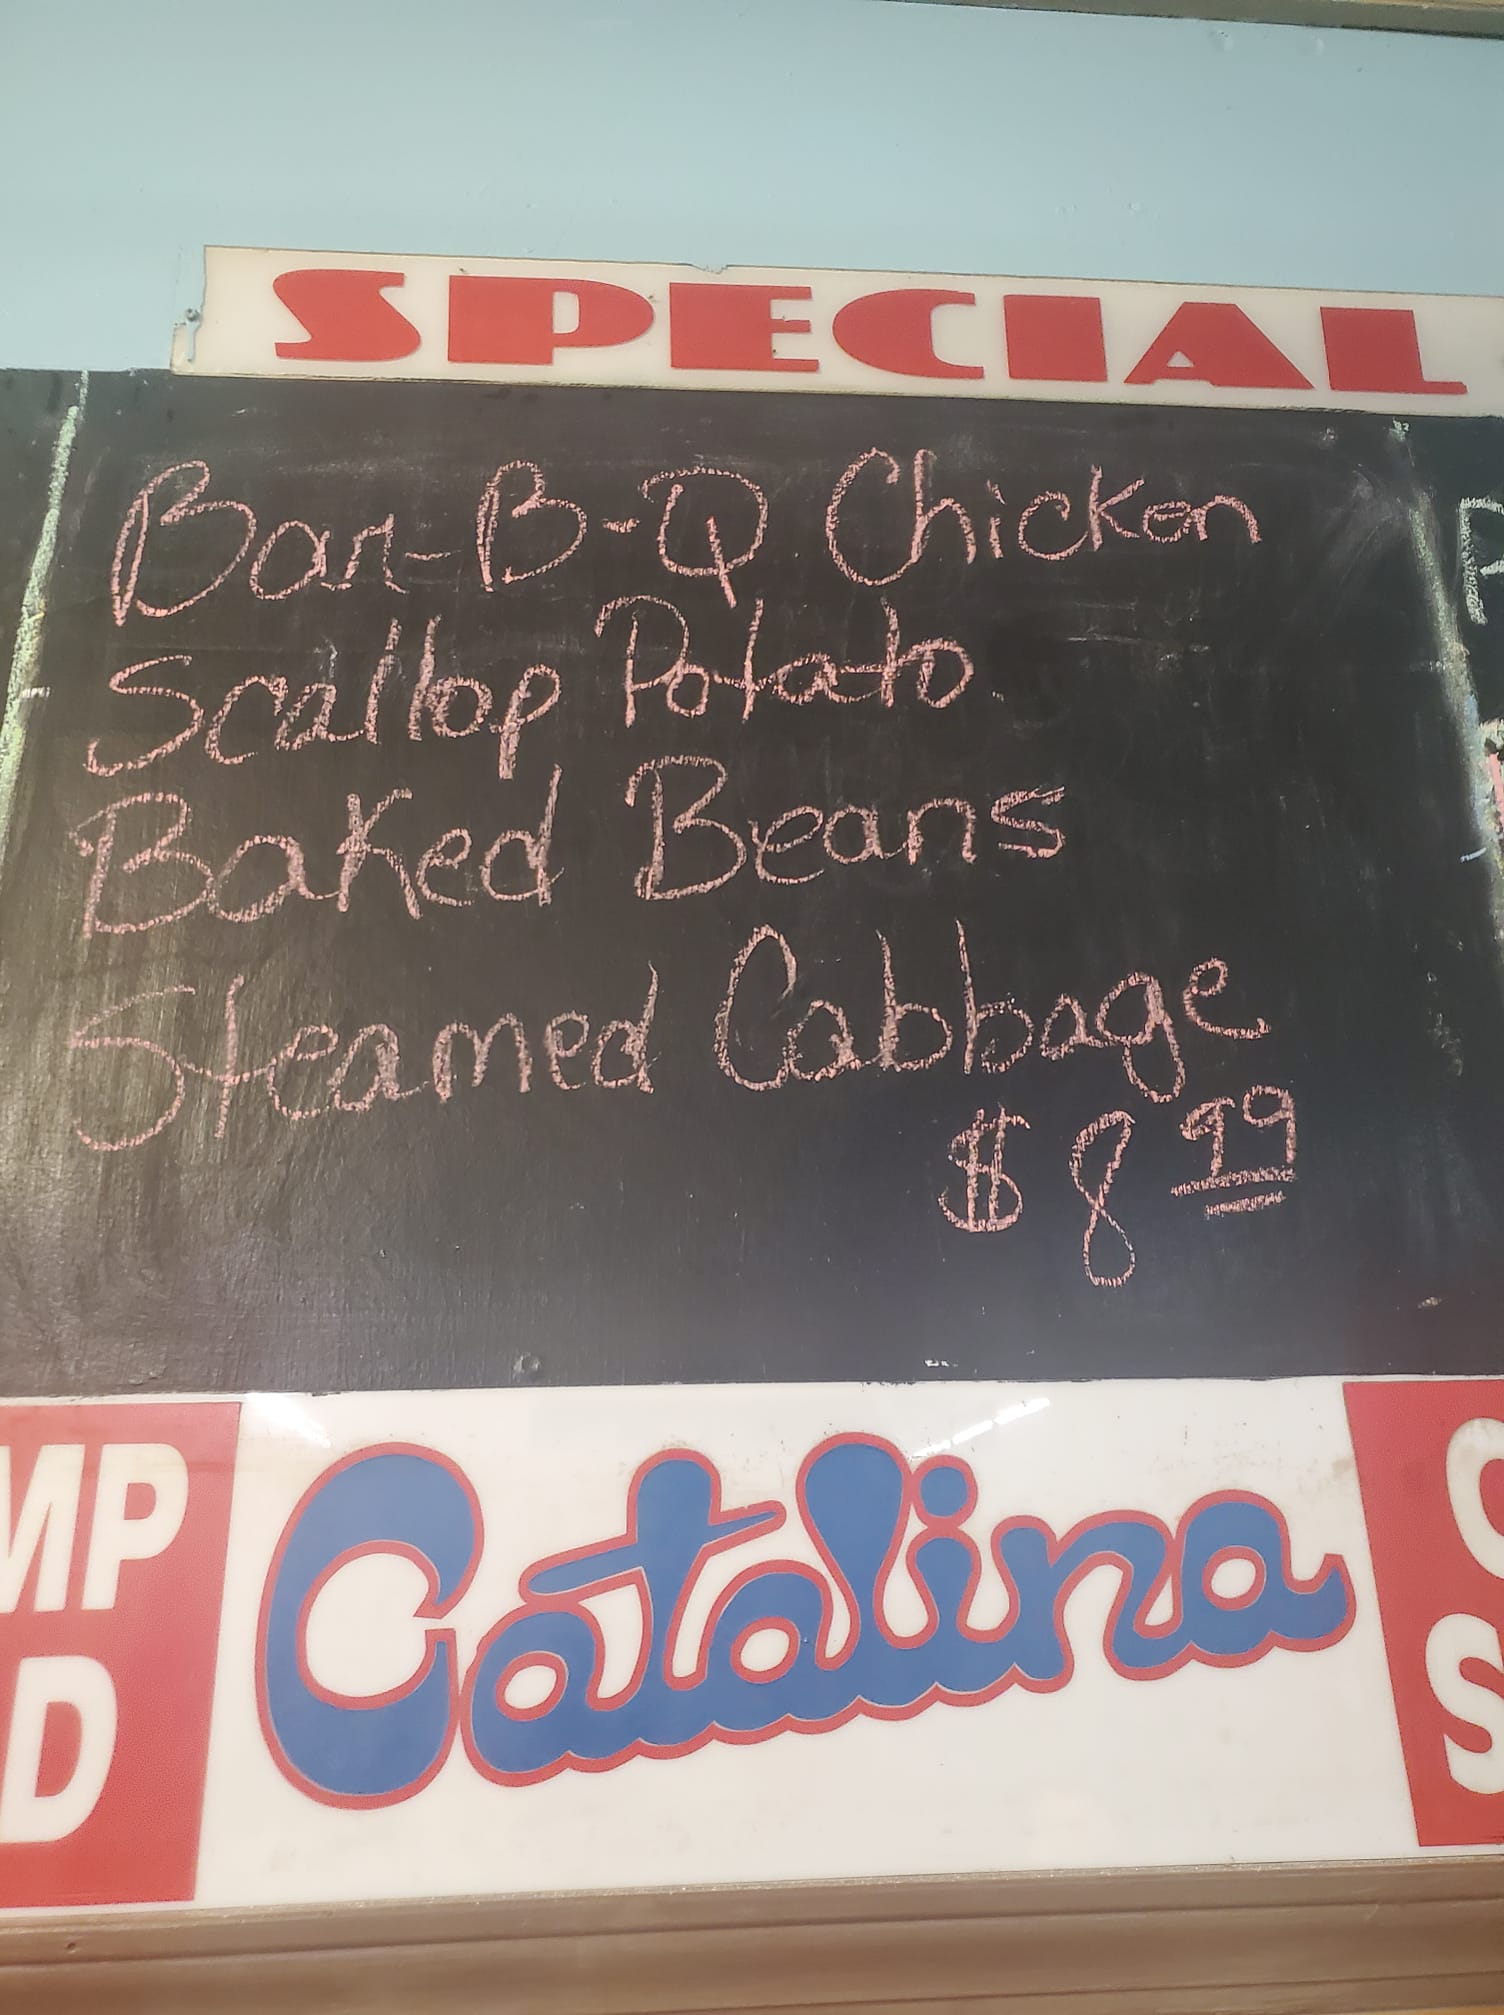 SPECIAL
Bar-B-Q Chicken
Scallop Potato
Baked Beans
Steamed Cabbage
$8.99
MP
D
Catalina
C
S